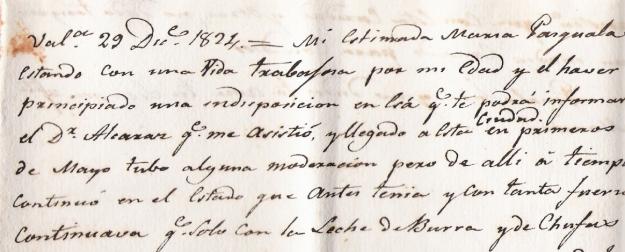 Val.ª 29 Dic.e 1824. = Mi estimada Maria Pasquala
Estando con una Vida trabajosa por mi Edad y el haver
principiado una indisposicion en esa q.e te podrá informar
el D.r Alcaraz q.e me asistió, y llegado a esta Ciudad en primeros
de Mayo tubo alguna moderacion pero de alli â tiempo
continuó en el Estado que antes tenia y con tanta fuerza
Continuava q.e Solo con la Leche de Burra y de Chufas